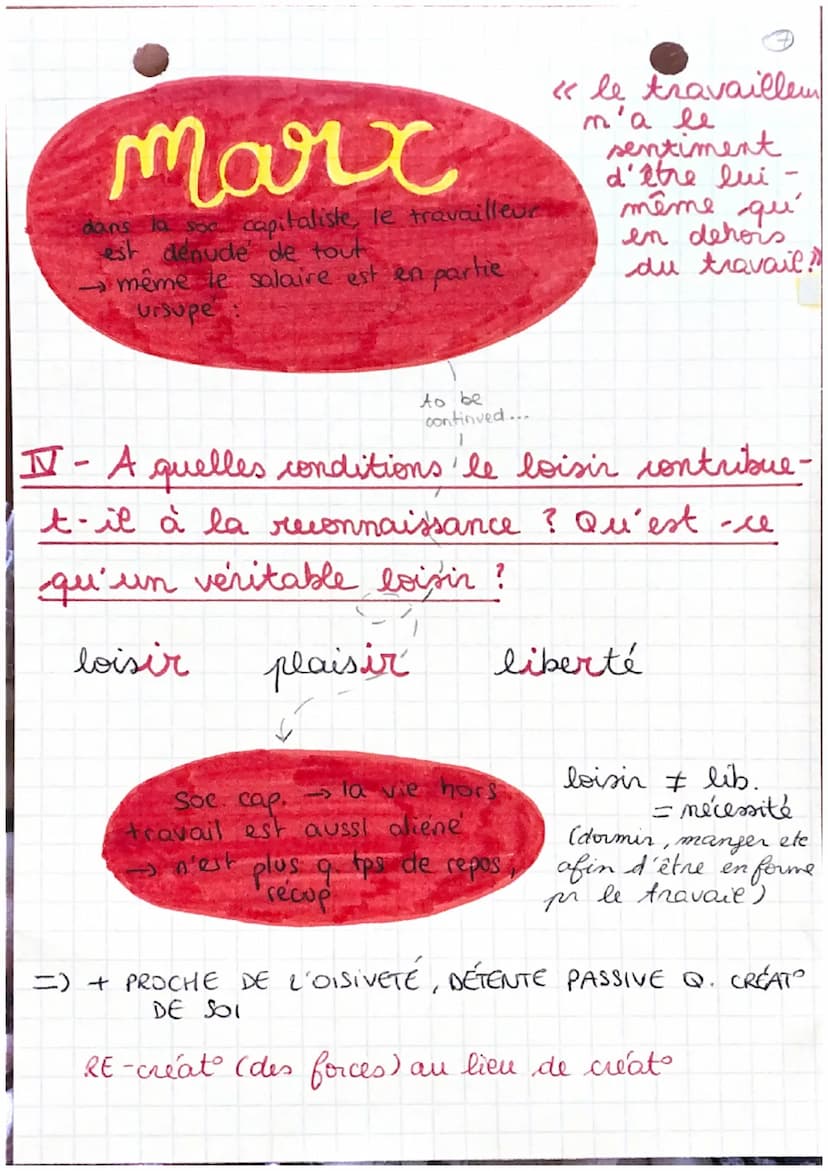 7
Marx
dans la soc capitaliste, le travailleur
est dénudé de tout
→ même le salaire est en partie
ursupé :
« le travailleur
n'a le
sentiment
d'être lui-
même qu'
en dehors
du travail.»
to be
continued...
IV - A quelles conditions le loisir contribue-
t-il à la reconnaissance ? Qu'est-ce
qu'un véritable loisir ?
loisir plaisir liberté
Soc. cap. → la vie hors
travail est aussi aliéné
→ n'est plus q. tps de repos,
récup
loisir ≠ lib.
= nécessité
(dormir, manger etc
afin d'être en forme
pr le travail)
=> + PROCHE DE L'OISIVETÉ, DÉTENTE PASSIVE Q. CRÉAT°
DE SOI
RE-créat° (des forces) au lieu de créat°